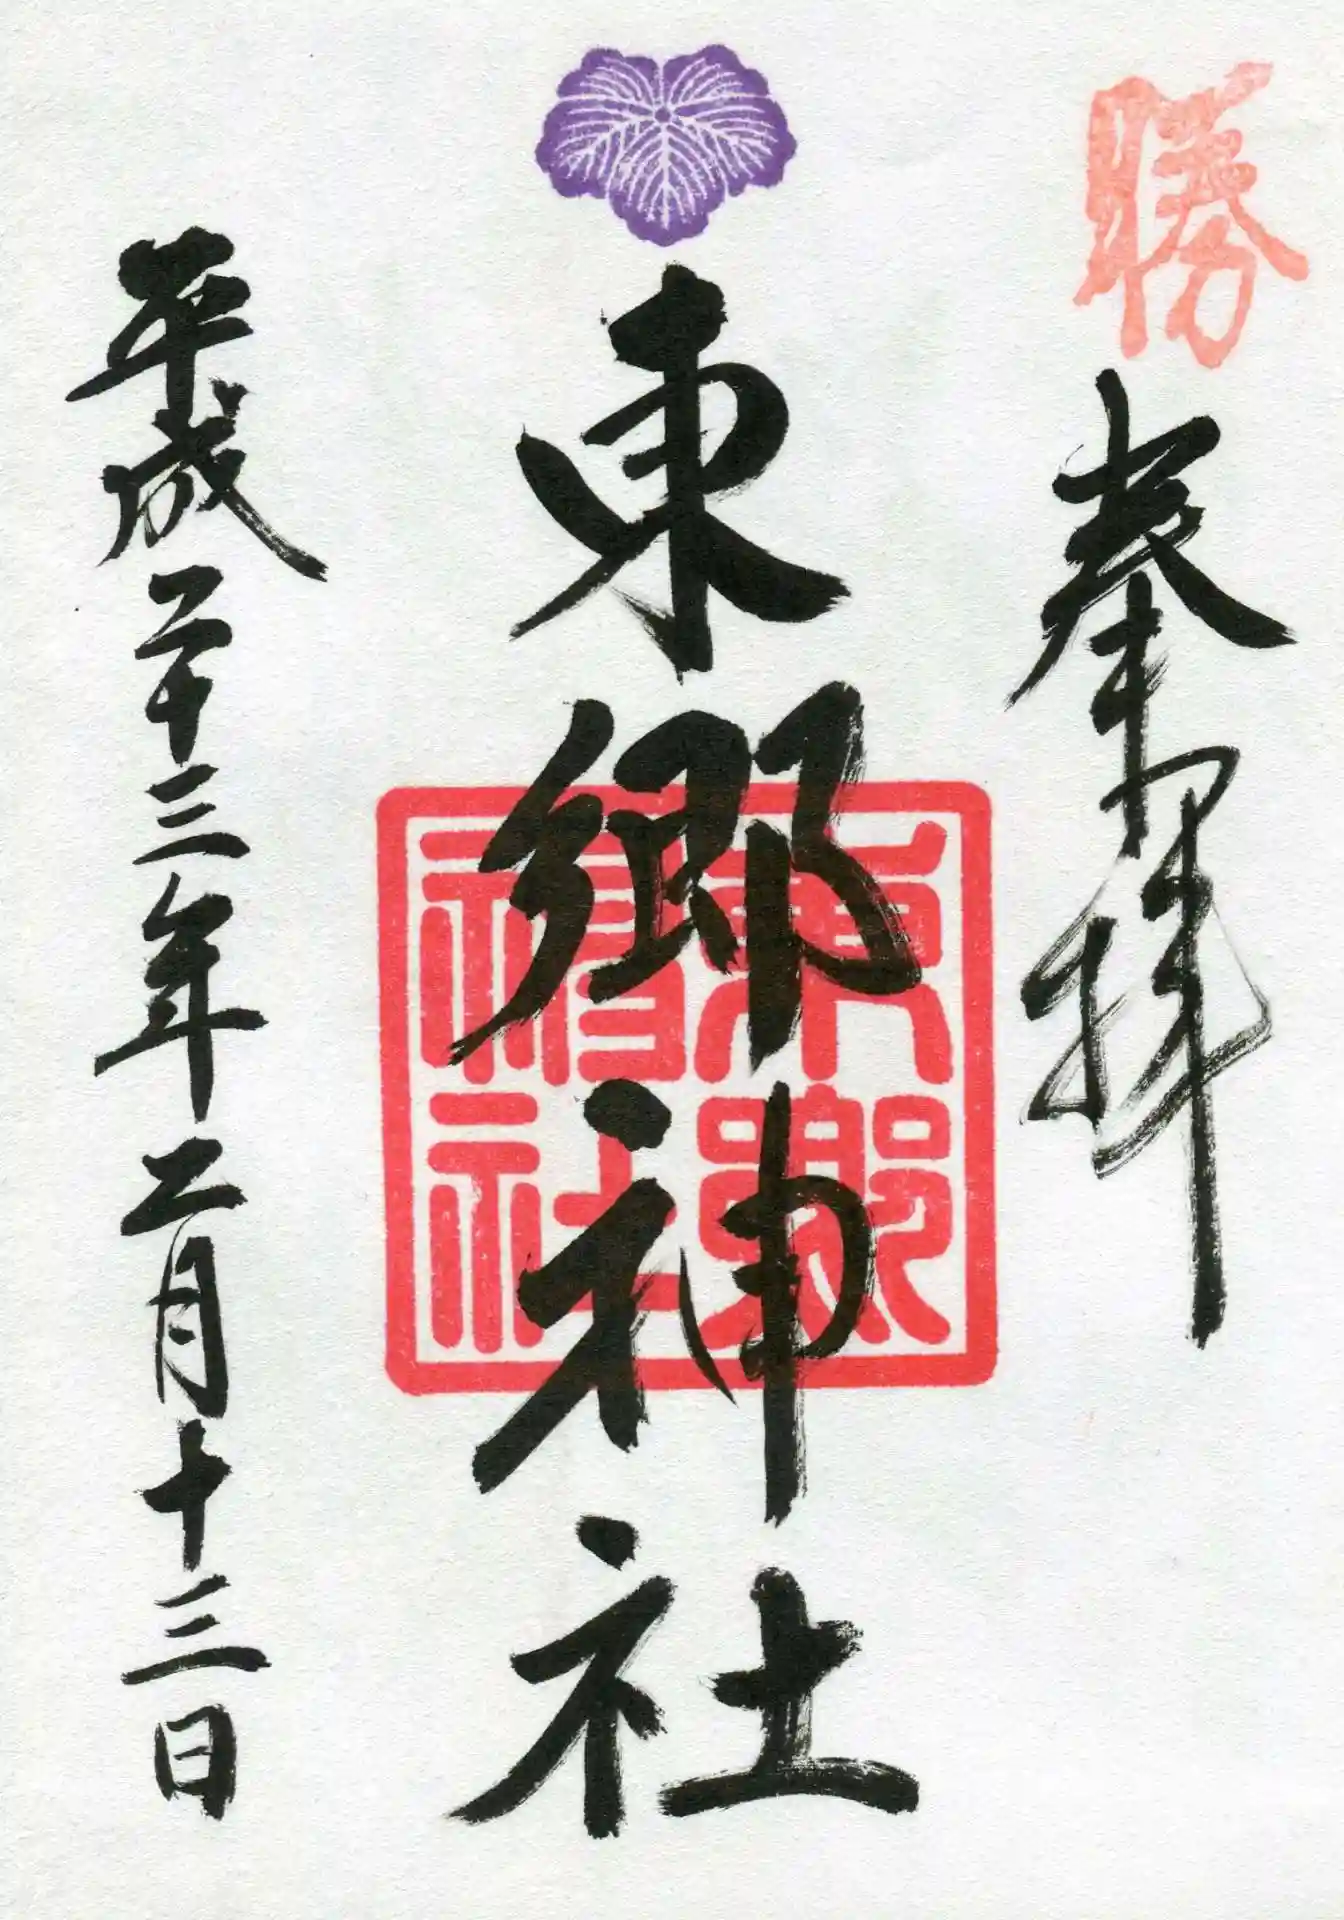 勝
奉拝
東郷神社
東郷
神社
平成二十三年二月十三日